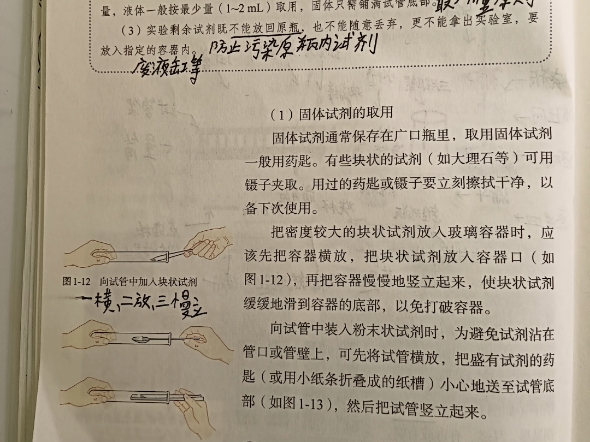 量，液体一般按最少量（1~2 mL）取用，固体只需铺满试管底部。
（3）实验剩余试剂既不能放回原瓶，也不能随意丢弃，更不能拿出实验室，要
放入指定的容器内。防止污染原瓶内试剂
废液缸等
（1）固体试剂的取用
固体试剂通常保存在广口瓶里，取用固体试剂
一般用药匙。有些块状的试剂（如大理石等）可用
镊子夹取。用过的药匙或镊子要立刻擦拭干净，以
备下次使用。
把密度较大的块状试剂放入玻璃容器时，应
该先把容器横放，把块状试剂放入容器口（如
图1-12），再把容器慢慢地竖立起来，使块状试剂
缓缓地滑到容器的底部，以免打破容器。
向试管中装入粉末状试剂时，为避免试剂沾在
管口或管壁上，可先将试管横放，把盛有试剂的药
匙（或用小纸条折叠成的纸槽）小心地送至试管底
部（如图1-13），然后把试管竖立起来。
图1-12 向试管中加入块状试剂
一横，二放，三慢立